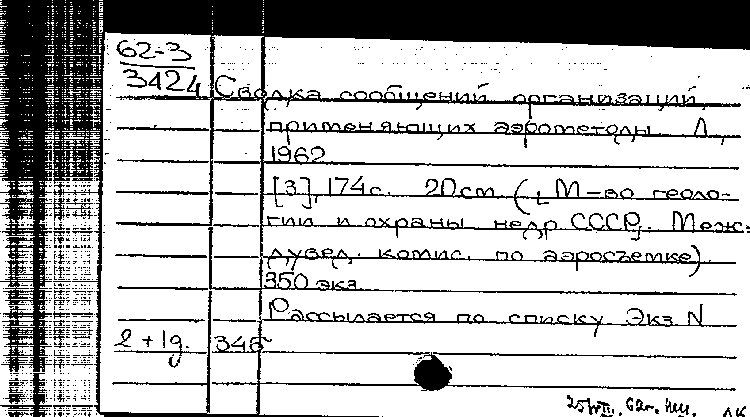 62-3
3424
Сводка сообщений организаций,
применяющих аэрометоды. Л.,
1962
[3], 174 с. 20 см (М-во геоло-
гии и охраны недр СССР. Меж-
дувед. комис. по аэросъемке)
350 экз.
Рассылается по списку Экз N
2 + 1д. 346